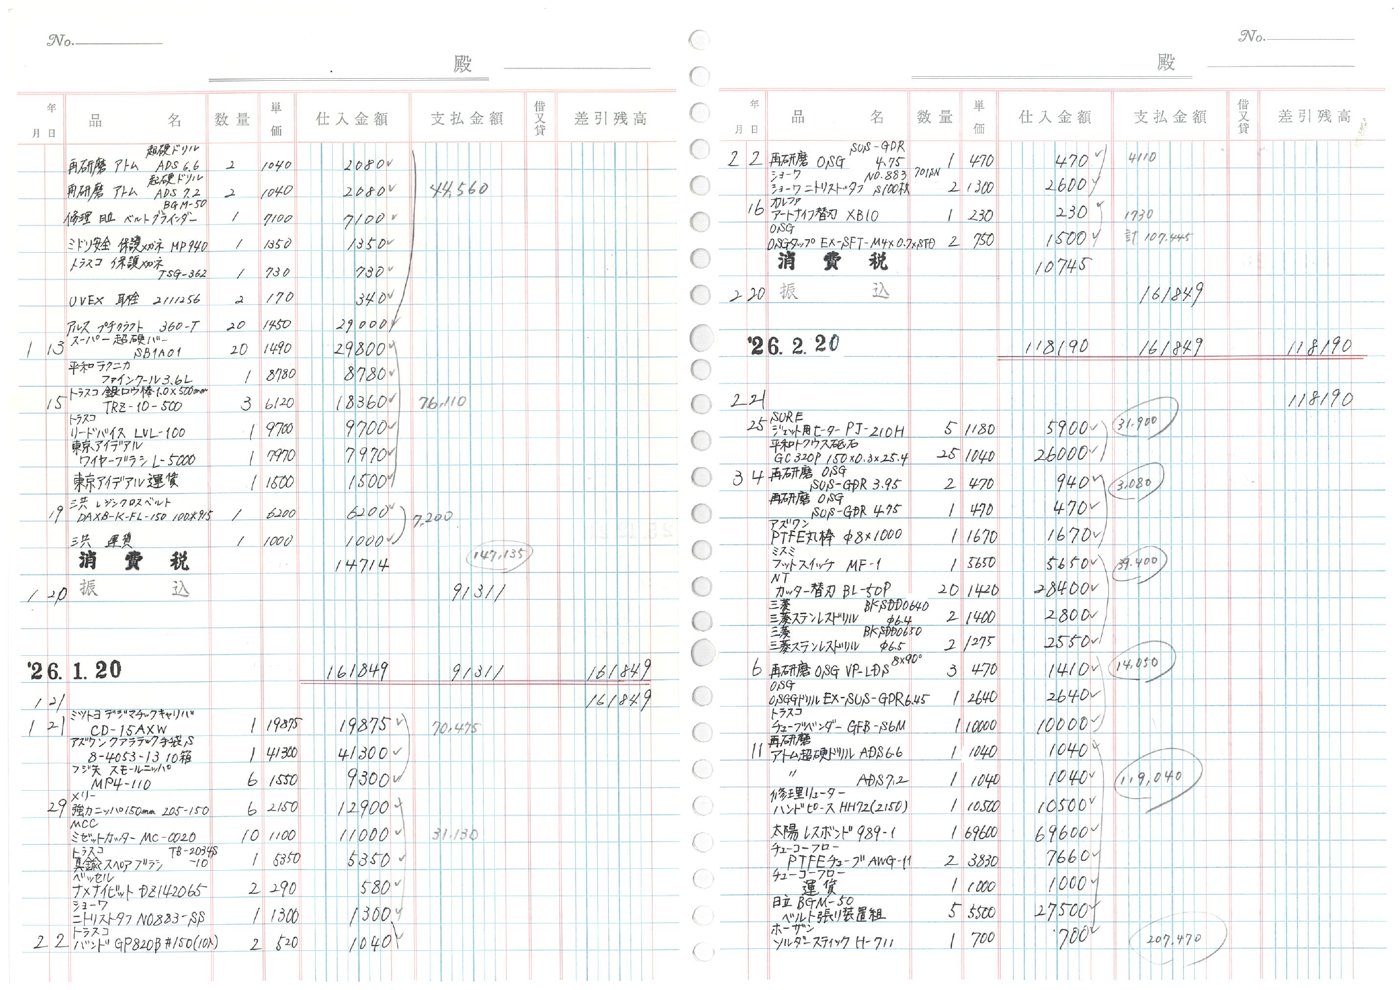 No.
殿
年
月 日 品 名 数量 単価 仕入金額 支払金額 借又貸 差引残高
超硬ドリル
再研磨 アトム ADS 6.6 2 1040 2080
超硬ドリル
再研磨 アトム ADS 7.2 2 1040 2080 44,560
BGM-50
修理 日立 ベルトグラインダー 1 7100 7100
ミドリ安全 保護メガネ MP940 1 1350 1350
トラスコ 保護メガネ
TSG-362 1 730 730
UVEX 耳栓 2111256 2 170 340
アルス プチクラフト 360-T 20 1450 29000
スーパー超硬バー
1 13 SB1A01 20 1490 29800
平和テクニカ
ファインクール3.6L 1 8780 8780
トラスコ 銀ロウ棒 1.0×500mm
15 TRZ-10-500 3 6120 18360 76,110
トラスコ
リードバイス LVL-100 1 9700 9700
東京アイデアル
ワイヤーブラシ L-5000 1 7970 7970
東京アイデアル 運賃 1 1500 1500
三共 レジンクロスベルト
19 DAXB-K-FL-150 100×915 1 6200 6200 7,200
三共 運賃 1 1000 1000
消費税 14714 147,135
1 20 振込 91311
'26.1.20 161849 91311 161849
1 21 161849
ミツトヨ デジマチックキャリパ
1 21 CD-15AXW 1 19875 19875 70,475
アズワン クアラテック手袋 S
8-4053-13 10箱 1 41300 41300
フジ矢 スモールニッパ
MP4-110 6 1550 9300
メリー
29 強力ニッパ150mm 205-150 6 2150 12900
MCC
ミゼットカッター MC-0020 10 1100 11000 31,130
トラスコ TB-2034S
真鍮スペアブラシ -10 1 5350 5350
ベッセル
ナメナイビット DZ142065 2 290 580
ショーワ
ニトリストタフ NO883-SS 1 1300 1300
トラスコ
2 2 バンド GP820B #150(10入) 2 520 1040
No.
殿
年
月 日 品 名 数量 単価 仕入金額 支払金額 借又貸 差引残高
SUS-GDR
2 2 再研磨 OSG 4.75 1 470 470 4110
ショーワ NO.883
ショーワ ニトリストタフ S100枚 2 1300 2600
カルファ
16 アートナイフ替刃 XB10 1 230 230 1730
OSG
OSGタップ EX-SFT-M4×0.7×STD 2 750 1500 計 107,445
消費税 10745
2 20 振込 161849
'26.2.20 118190 161849 118190
2 21 118190
SURE
25 ジェット用ヒーター PJ-210H 5 1180 5900 31,900
平和トクウス砥石
GC320P 150×0.3×25.4 25 1040 26000
3 4 再研磨 OSG
SUS-GDR 3.95 2 470 940 3,080
再研磨 OSG
SUS-GDR 4.75 1 470 470
アズワン
PTFE丸棒 φ8×1000 1 1670 1670
ミスミ
フットスイッチ MF-1 1 5650 5650 39,400
NT
カッター替刃 BL-50P 20 1420 28400
三菱 BKSDD0640
三菱ステンレスドリル φ6.4 2 1400 2800
三菱 BKSDD0650
三菱ステンレスドリル φ6.5 2 1275 2550
6 再研磨 OSG VP-LDS 8×90° 3 470 1410 14,050
OSG
OSGGドリル EX-SUS-GDR6.45 1 2640 2640
トラスコ
チューブベンダー GFB-S6M 1 10000 10000
再研磨
11 アトム超硬ドリル ADS6.6 1 1040 1040
〃 ADS7.2 1 1040 1040 119,040
修理リューター
ハンドピース HH72(2150) 1 10500 10500
太陽 レスボンド 989-1 1 69600 69600
チューコーフロー
PTFEチューブ AWG-11 2 3830 7660
チューコーフロー
運賃 1 1000 1000
日立 BGM-50
ベルト張り装置組 5 5500 27500
ホーザン
ソルダースティック H-711 1 700 700 207,470